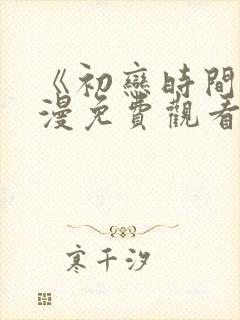 《初戀時間
漫免費觀看
寒千汐